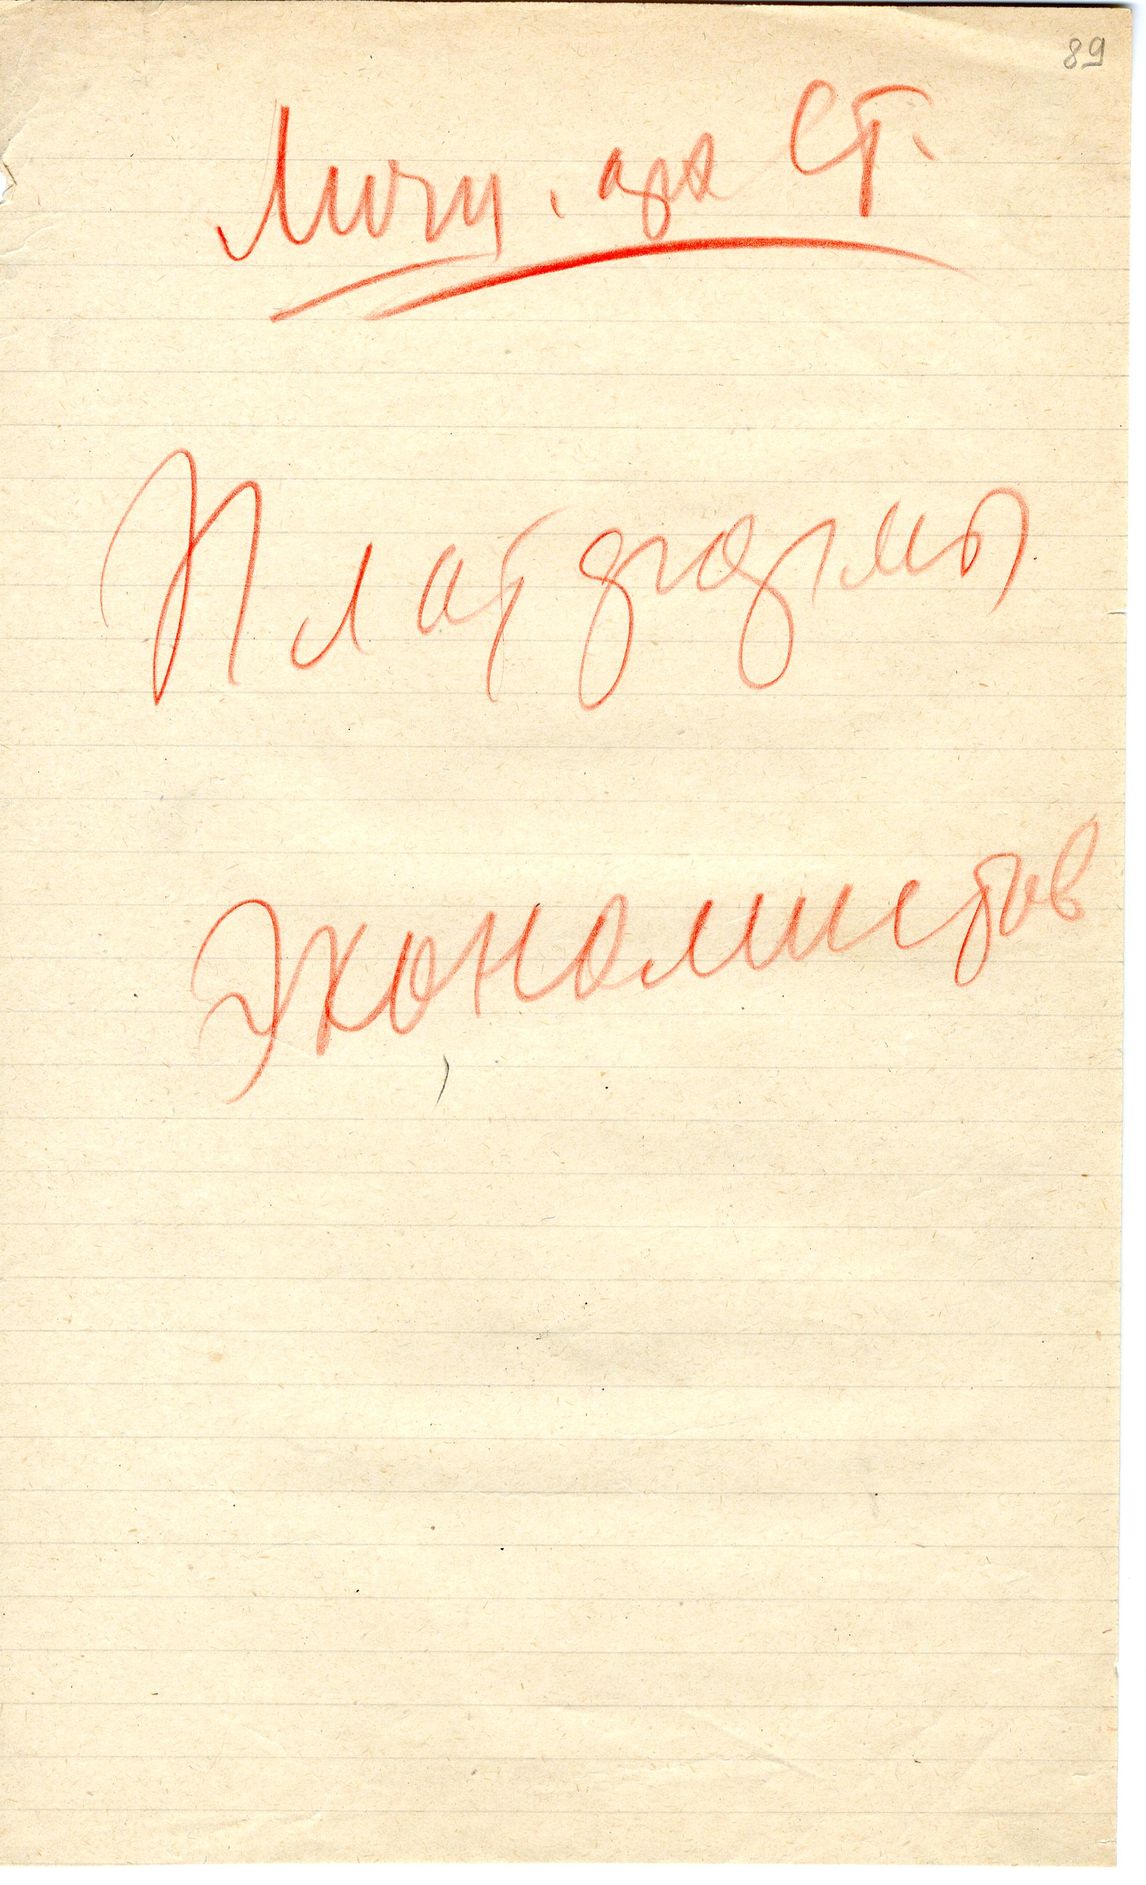 89
Личн. арх Ст.
Платформы
экономистов